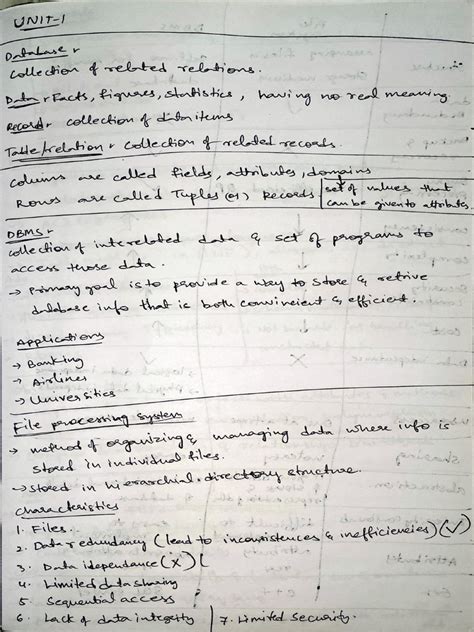 UNIT-1
Database :-
Collection of related relations.
Data :- Facts, figures, statistics, having no real meaning.
Record :- collection of data items
Table/relation :- Collection of related records.
Columns are called fields, attributes, domains
Rows are called Tuples (or) Records | set of values that
can be given to attributes
DBMS :-
collection of interelated data & set of programs to
access those data.
→ Primary goal is to provide a way to store & retrive
database info that is both convinient & efficient.
Applications
→ Banking
→ Airlines
→ Universities
File processing system
→ method of organizing & managing data where info is
stored in individual files.
→ Stored in hierarchial directory structure.
Characteristics
1. Files.
2. Data redundancy (lead to inconsistences & inefficiencies) (√)
3. Data idependance (x) (
4. Limited data sharing
5. Sequential access
6. Lack of data integrity | 7. Limited Security.